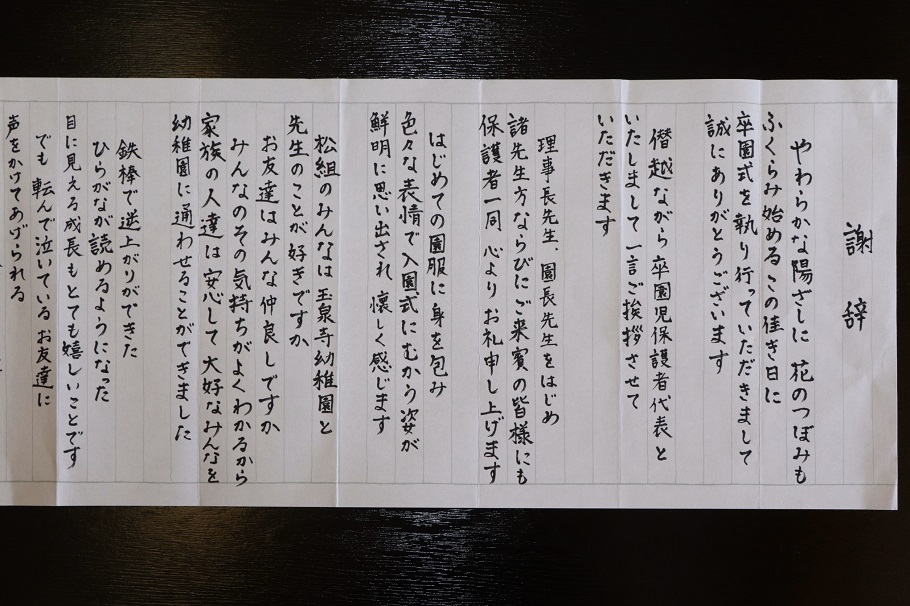 謝辞
やわらかな陽ざしに 花のつぼみも
ふくらみ始めるこの佳き日に
卒園式を執り行っていただきまして
誠にありがとうございます
僭越ながら 卒園児保護者代表と
いたしまして 一言ご挨拶させて
いただきます
理事長先生、園長先生をはじめ
諸先生方ならびにご来賓の皆様にも
保護者一同 心よりお礼申し上げます
はじめての園服に身を包み
色々な表情で入園式にむかう姿が
鮮明に思い出され 懐しく感じます
松組のみんなは 玉泉寺幼稚園と
先生のことが好きですか
お友達はみんな仲良しですか
みんなのその気持ちがよくわかるから
家族の人達は安心して大好なみんなを
幼稚園に通わせることができました
鉄棒で逆上がりができた
ひらがなが読めるようになった
目に見える成長もとても嬉しいことです
でも 転んで泣いているお友達に
声をかけてあげられる